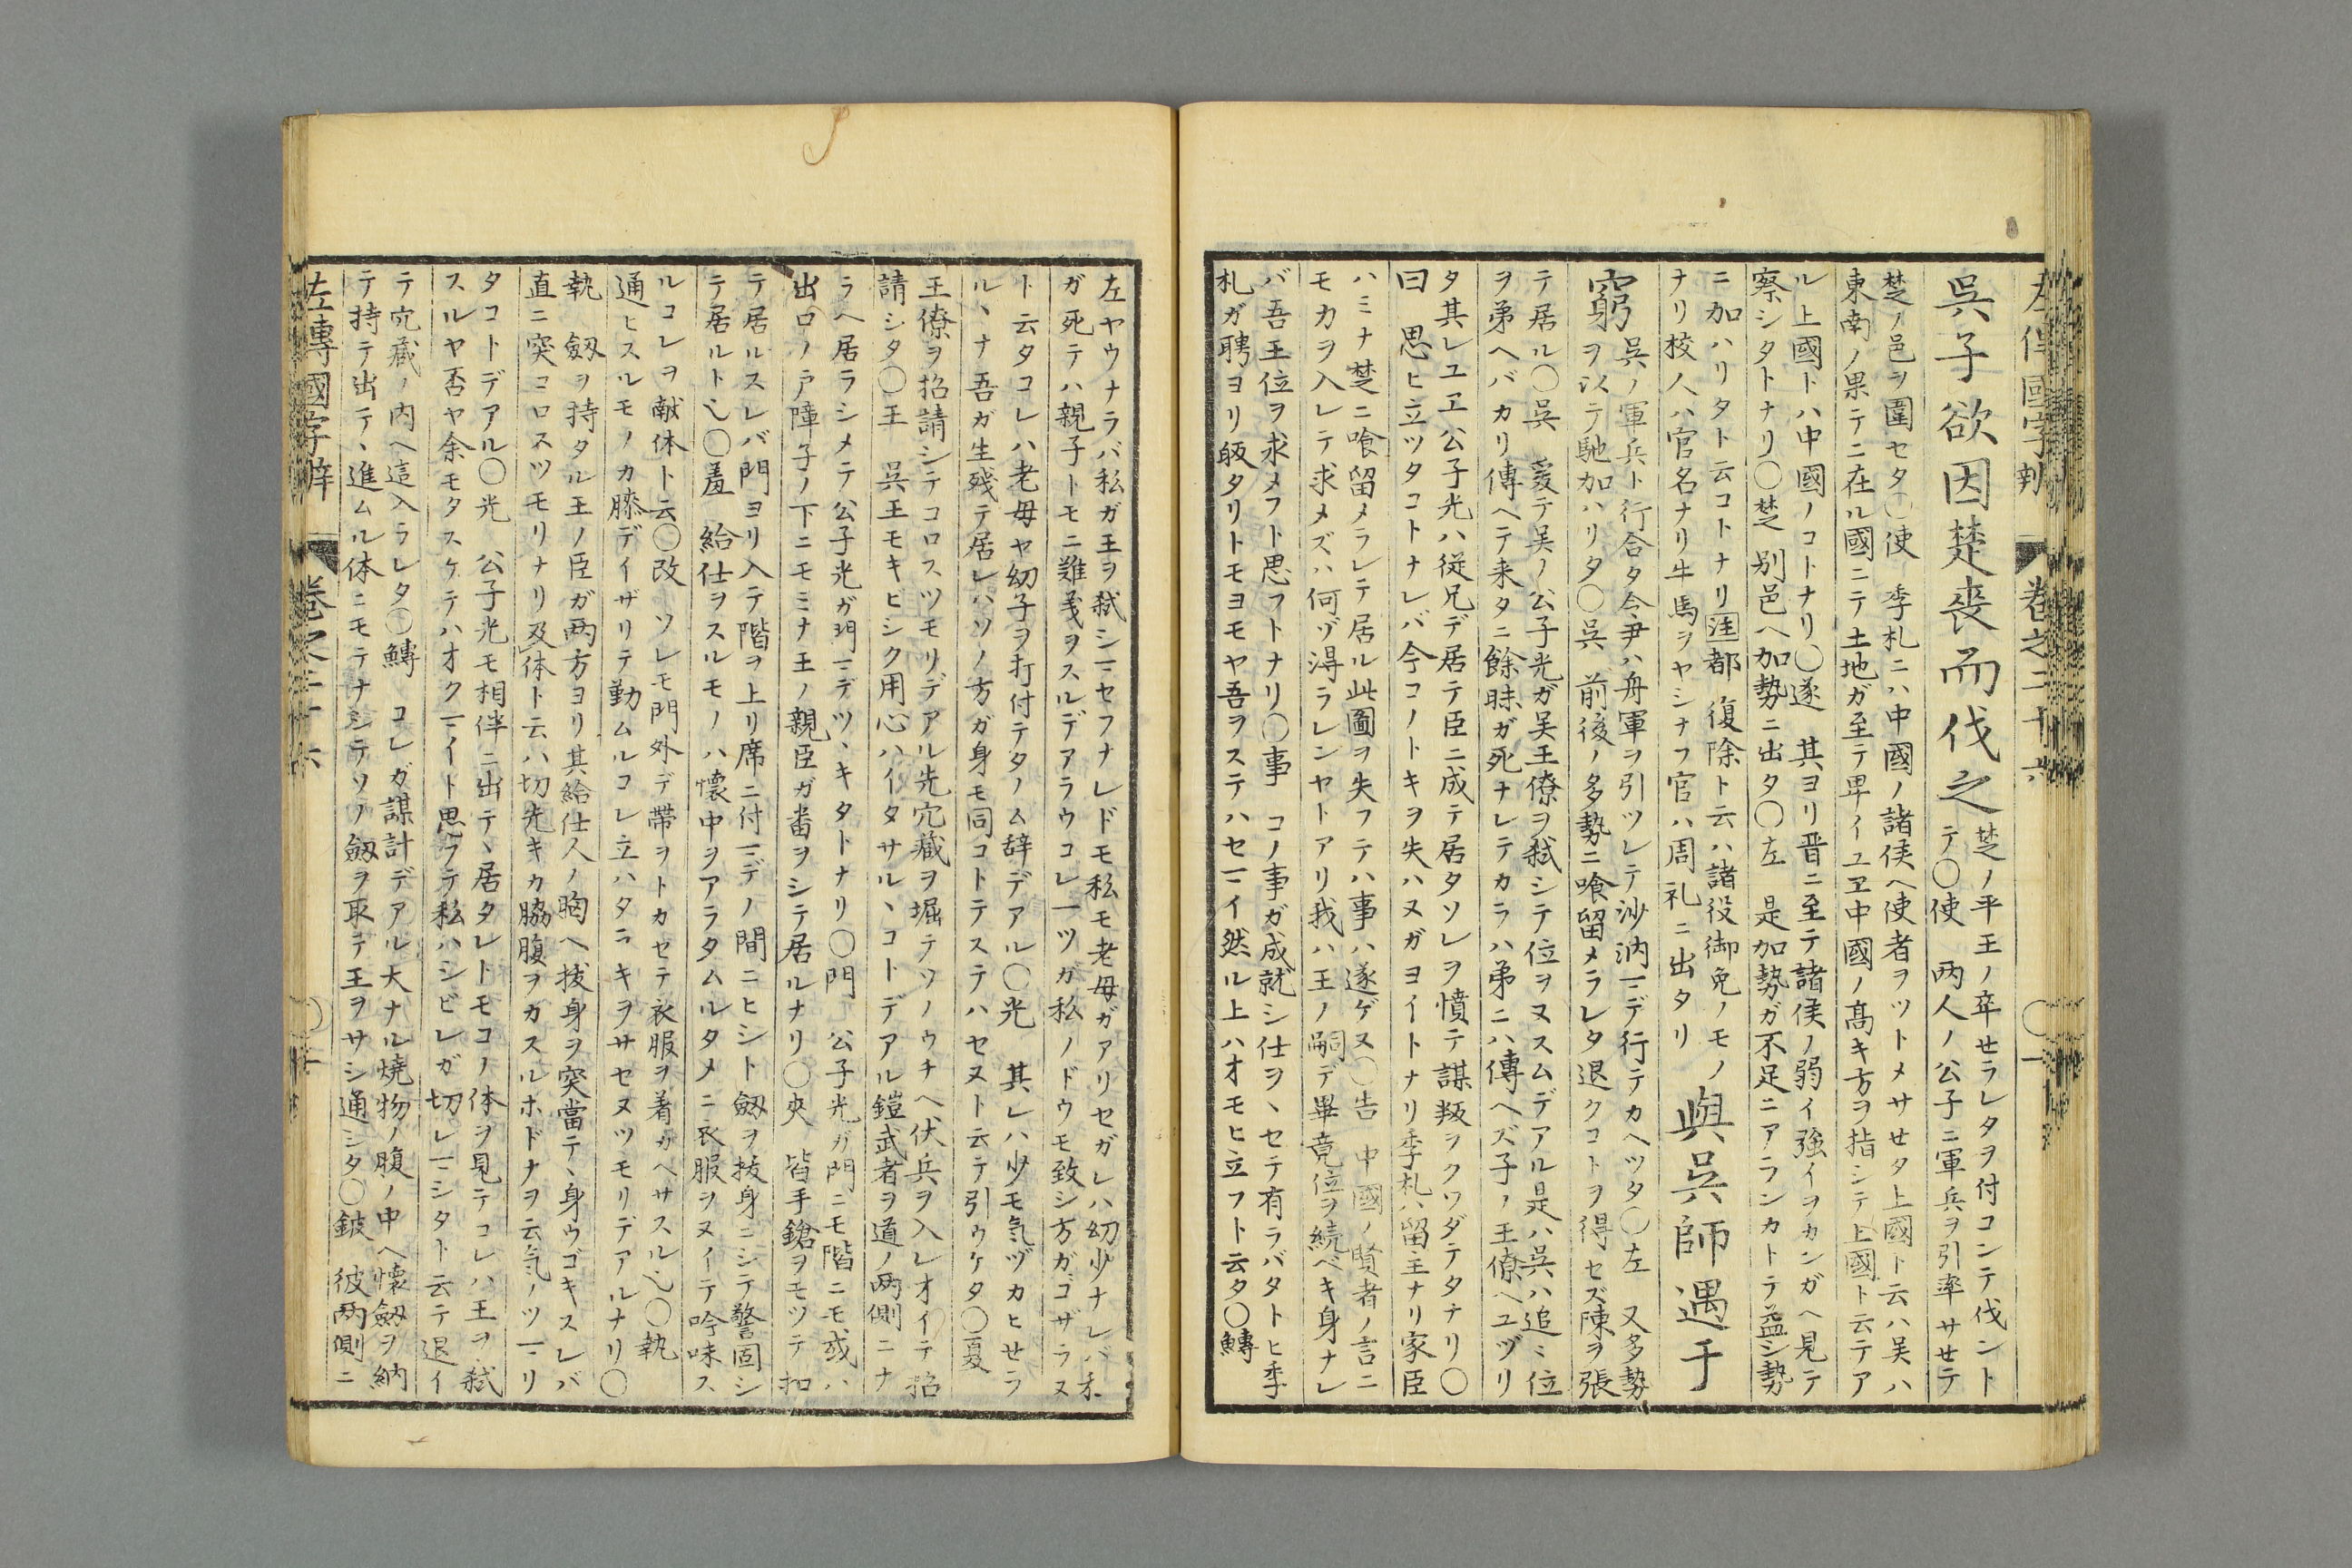 左傳國字辨 卷之二十六 〇一
吳子欲因楚喪而伐之
楚ノ平王ノ卒せラレタヲ付コンテ伐ント
テ〇使 两人ノ公子ニ軍兵ヲ引率サせテ
楚ノ邑ヲ圍セタ〇使 季札ニハ中國ノ諸侯へ使者ヲツトメサせタ上國ト云ハ吴ハ
東南ノ果テニ在ル國ニテ土地ガ至テ卑イユヱ中國ノ髙キ方ヲ指シテ上國ト云テア
ル上國トハ中國ノコトナリ〇遂 其ヨリ晋ニ至テ諸侯ノ弱イ強イヲカンガへ見テ
察シタトナリ〇楚 别邑へ加勢ニ出タ〇左 是加勢ガ不足ニアランカトテ益シ勢
ニ加ハリタト云コトナリ注都 復除ト云ハ諸役御免ノモノ
ナリ校人ハ官名ナリ牛馬ヲヤシナフ官ハ周礼ニ出タリ
與吳師遇于
窮
吳ノ軍兵ト行合タ令尹ハ舟軍ヲ引ツレテ沙汭マデ行テカヘツタ〇左 又多勢
ヲ以テ馳加ハリタ〇吳 前後ノ多勢ニ喰留メラレタ退クコトヲ得セズ陳ヲ張
テ居ル〇吳 爰テ吴ノ公子光ガ吴王僚ヲ弑シテ位ヲヌスムデアル是ハ吳ハ追〻位
ヲ弟ヘバカリ傳ヘテ来タニ餘昧ガ死ナレテカラハ弟ニハ傳ヘズ子ノ王僚ヘユヅリ
タ其レユヱ公子光ハ従兄デ居テ臣ニ成テ居タソレヲ憤テ謀叛ヲクワダテタナリ〇
曰 思ヒ立ツタコトナレバ今コノトキヲ失ハヌガヨイトナリ季札ハ留主ナリ家臣
ハミナ楚ニ喰留メラレテ居ル此圖ヲ失フテハ事ハ遂ゲヌ〇告 中國ノ賢者ノ言ニ
モカヲ入レテ求メズハ何ヅ淂ラレンヤトアリ我ハ王ノ嗣デ畢竟位ヲ続ベキ身ナレ
バ吾王位ヲ求メフト思フトナリ〇事 コノ事ガ成就シ仕ヲヽセテ有ラバタトヒ季
札ガ聘ヨリ皈タリトモヨモヤ吾ヲステハセマイ然ル上ハオモヒ立フト云タ〇鱄
左ヤウナラバ私ガ王ヲ弑シマセフナレドモ私モ老母ガアリセガレハ幼少ナレバ私
ガ死テハ親子トモニ難義ヲスルデアラウコレ一ツガ私ノドウモ致シ方ガゴザラヌ
ト云タコレハ老母ヤ幼子ヲ打付テタノム辞デアル〇光 其レハ少モ気ヅカヒせラ
ルヽナ吾ガ生残テ居レハソノ方ガ身モ同コトテステハセヌト云テ引ウケタ〇夏
王僚ヲ招請シテコロスツモリデアル先穴藏ヲ堀テソノウチヘ伏兵ヲ入レオイテ招
請シタ〇王 吳王モキビシク用心ハイタサルヽコトデアル鎧武者ヲ道ノ两側ニナ
ラヘ居ラシメテ公子光ガ門マデツヾキタトナリ〇門 公子光ガ門ニモ階ニモ或ハ
出口ノ戸障子ノ下ニモミナ王ノ親臣ガ畨ヲシテ居ルナリ〇夾 皆手鎗ヲモツテ扣
テ居ルスレバ門ヨリ入テ階ヲ上リ席ニ付マデノ間ニヒシト劔ヲ抜身ニシテ警固シ
テ居ルト也〇羞 給仕ヲスルモノハ懐中ヲアラタムルタメニ衣服ヲヌイテ吟味ス
ルコレヲ献体ト云〇改 ソレモ門外デ帶ヲトカセテ衣服ヲ着ガヘサスル也〇執
通ヒスルモノカ膝デイザリテ勤ムルコレ立ハタラキヲサセヌツモリデアルナリ〇
執 劔ヲ持タル王ノ臣ガ两方ヨリ其給仕人ノ胸ヘ抜身ヲ突當テヽ身ウゴキスレバ
直ニ突コロスツモリナリ及体ト云ハ切先キカ脇腹ヲカスルホドナヲ云気ノツマリ
タコトデアル〇光 公子光モ相伴ニ出テヽ居タレトモコノ体ヲ見テコレハ王ヲ弑
スルヤ否ヤ余モタスケテハオクマイト思フテ私ハシビレガ切レマシタト云テ退イ
テ穴藏ノ内へ這入ラレタ〇鱄 コレガ謀計デアル大ナル焼物ノ腹ノ中へ懐劔ヲ納
テ持テ出テヽ進ムル体ニモテナシテソノ劔ヲ取テ王ヲサシ通シタ〇鈹 彼两側ニ
左傳國字辨 卷之二十六 〇一